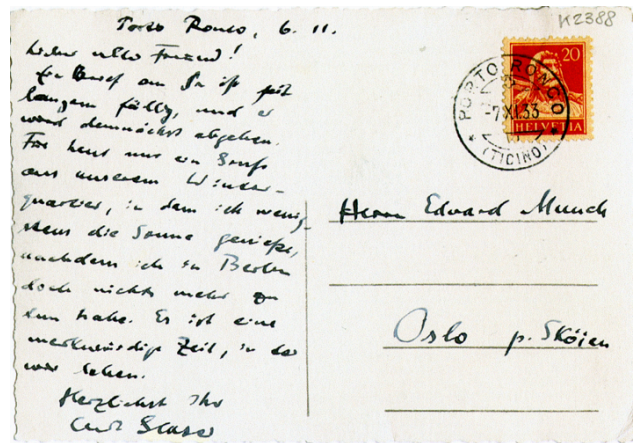 Porto Ronco, 6. 11.
Lieber alter Freund!
Ein Brief an Sie ist seit
langem fällig, und er
wird demnächst abgehen.
Für heut nur ein Gruß
aus unserem Winter-
quartier, in dem ich wenig-
stens die Sonne genieße,
nachdem ich in Berlin
doch nichts mehr zu
tun habe. Es ist eine
merkwürdige Zeit, in der
wir leben.
Herzlichst Ihr
Curt Glaser
K2388
20
HELVETIA
PORTO RONCO
-7.XI.33
(TICINO)
Herrn Edvard Munch
Oslo p. Sköien